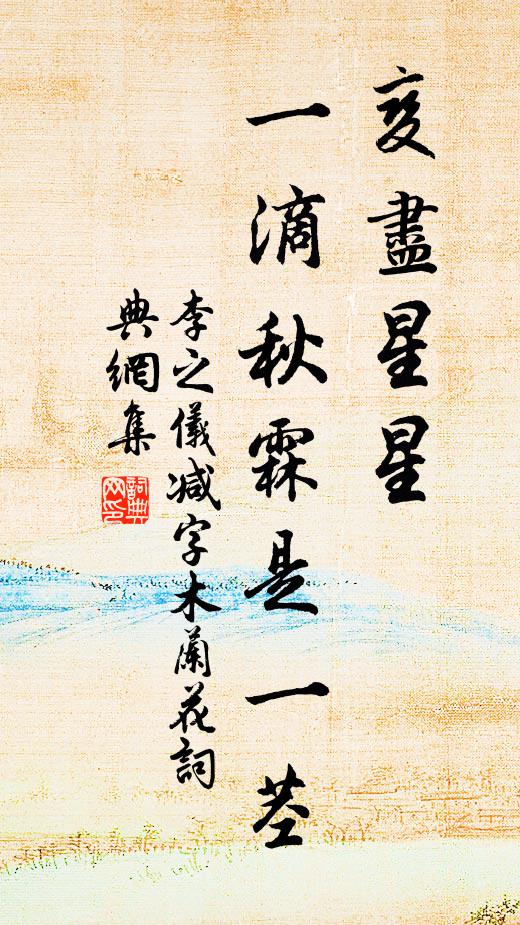 变盡星星
一滴秋霖是一莖
李之儀减字木蘭花詞
典網集
詞典網印